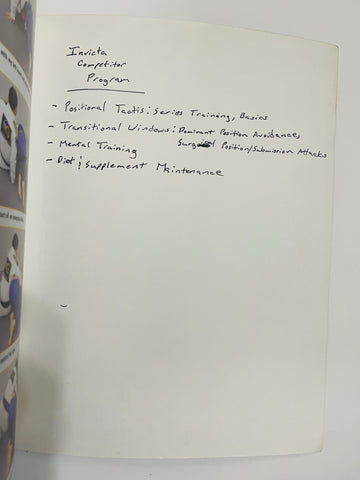 Invicta
Competitor
Program
- Positional Tactis: Series Training, Basics
- Transitional Windows: Dominant Position Avoidances
Position/Submission Attacks
- Mental Training
- Diet & Supplement Maintenance